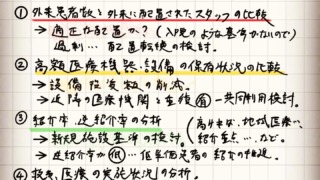 ① 外来患者数と外来に配置されたスタッフの比較
→ 適正な配置か? (入院のような基準がないので)
過剰… 配置転換の検討。
② 高額医療機器・設備の保有状況の比較
→ 設備投資額の削減。
→ 近隣の医療機関と重複 有 → 共同利用検討。
③ 紹介率、逆紹介率の分析
→ 新規施設基準の検討。(
地域医療
→ 逆紹介率が 低 …
の紹介の推進。
④ 医療の実施状況の分析